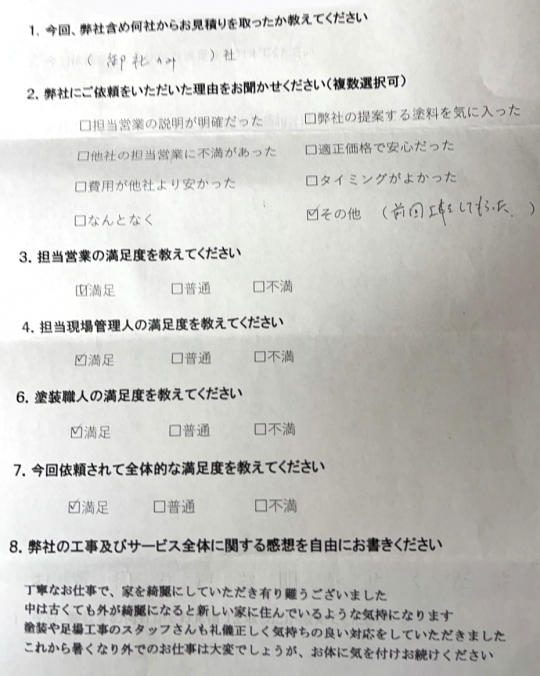 1. 今回、弊社含め何社からお見積りを取ったか教えてください
( 御社のみ ) 社
2. 弊社にご依頼をいただいた理由をお聞かせください(複数選択可)
□担当営業の説明が明確だった □弊社の提案する塗料を気に入った
□他社の担当営業に不満があった □適正価格で安心だった
□費用が他社より安かった □タイミングがよかった
□なんとなく ☑その他 (前回工事をしてもらった。)
3. 担当営業の満足度を教えてください
☑満足 □普通 □不満
4. 担当現場管理人の満足度を教えてください
☑満足 □普通 □不満
6. 塗装職人の満足度を教えてください
☑満足 □普通 □不満
7. 今回依頼されて全体的な満足度を教えてください
☑満足 □普通 □不満
8. 弊社の工事及びサービス全体に関する感想を自由にお書きください
丁寧なお仕事で、家を綺麗にしていただき有り難うございました
中は古くても外が綺麗になると新しい家に住んでいるような気持になります
塗装や足場工事のスタッフさんも礼儀正しく気持ちの良い対応をしていただきました
これから暑くなり外でのお仕事は大変でしょうが、お体に気を付けお続けください